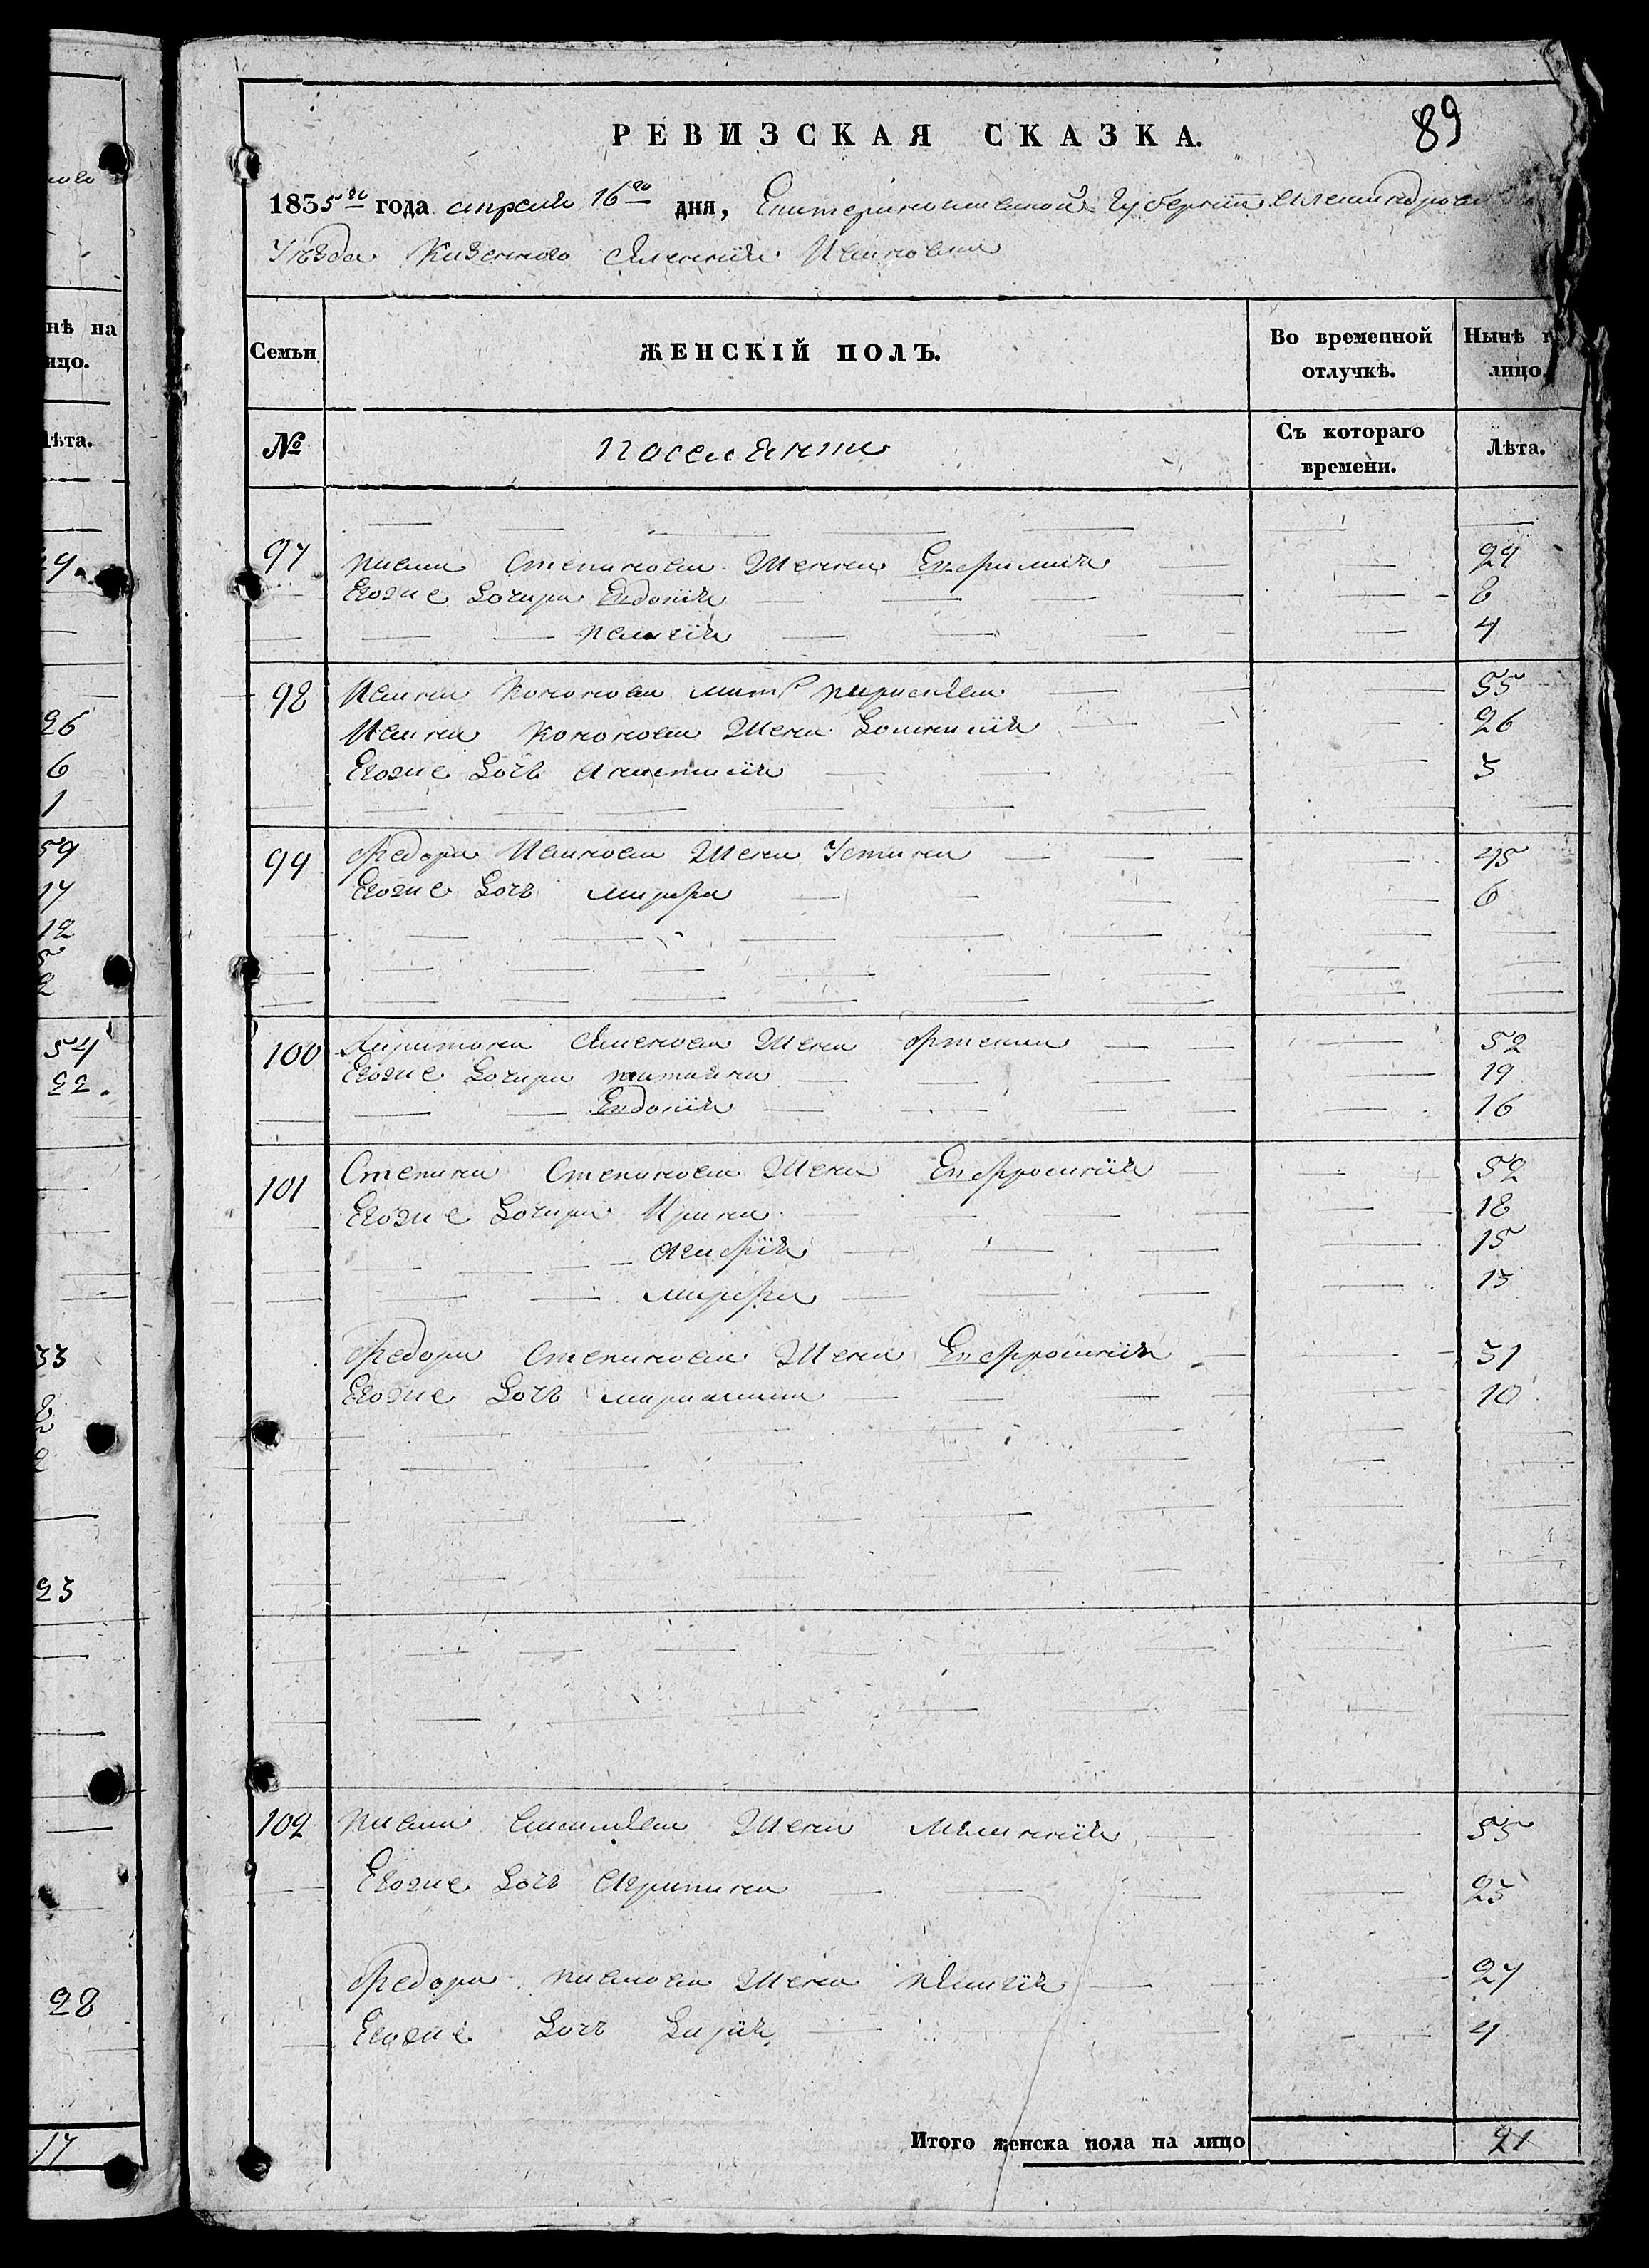 89
РЕВИЗСКАЯ СКАЗКА.
1835го года апреля 16го дня, Екатеринославской Губернии Александровского
Уезда Казенного Селения Ивановки
Семьи
ЖЕНСКІЙ ПОЛЪ.
Во временной отлучкѣ.
Нынѣ н
лицо.
№
поселяне
Съ котораго времени.
Лѣта.
97 павла Степанова Жена Евфимия 29
Егоже Дочери Евдокия 8
пелагия 4
98 Ивана Кононова мать 55
Ивана Кононова Жена Домникия 26
Егоже Дочь Анастасия 3
99 Федора Иванова Жена Устина 45
Егоже Дочь марфа 6
100 Харитона Семенова Жена 52
Егоже Дочери татьяна 19
Евдокия 16
101 Степана Степанова Жена Евфросиния 52
Егоже Дочери Ирина 18
Агафия 15
марфа 13
Федора Степанова Жена Евфросиния 31
Егоже Дочь 10
102 павла Васильева Жена Мелания 53
Егоже Дочь Агрипина 23
Федора павлова Жена пелагия 27
Егоже Дочь Дария 4
Итого женска пола на лицо 21
нѣ на
ицо.
ѣта.
26
6
1
59
17
12
54
22
33
23
28
17